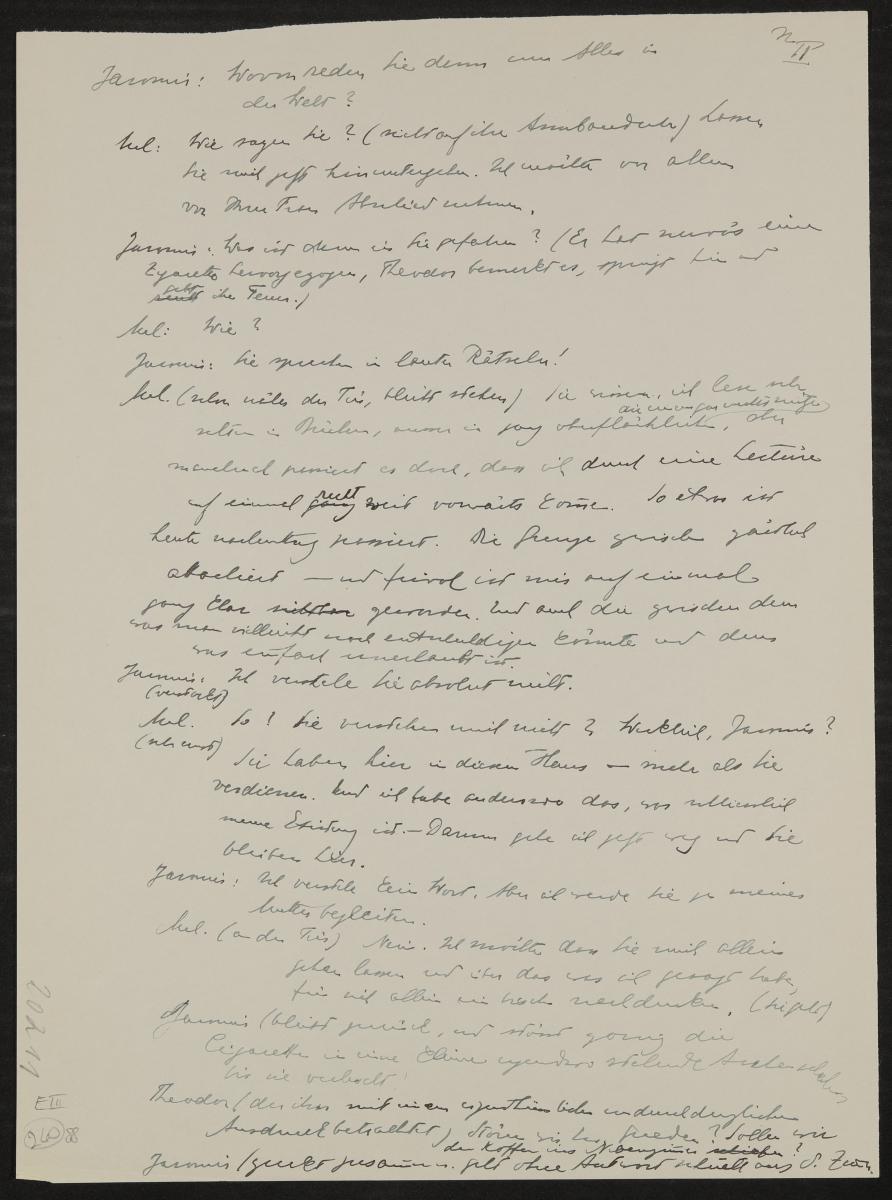 II
Jaromir: Wovon reden Sie denn um Alles in
der Welt?
Mel: Wie sagen Sie? (sieht auf ihre Armbanduhr) Lassen
Sie mich jetzt hinuntergehen. Ich möchte vor allem
von Ihrer Frau Abschied nehmen.
Jaromir: Was ist denn in Sie gefahren? (Er hat nervös eine
Zigarette hervorgezogen, Theodor bemerkt es, springt hin und
gibt ihm Feuer.)
Mel: Wie?
Jaromir: Sie sprechen in lauter Rätseln!
Mel. (schon näher der Tür, bleibt stehen) Sie wissen, ich lese sehr
selten in Büchern, ausser in ganz oberflächlichen, aber
manchmal passiert es doch, dass ich durch eine Lectüre
auf einmal recht weit vorwärts komme. So etwas ist
heute nachmittag passiert. Die Grenze zwischen
und frivol ist mir auf einmal
ganz klar geworden. Und auch die zwischen dem
was man vielleicht noch entschuldigen könnte und dem
was einfach unerlaubt ist.
Jaromir: Ich verstehe Sie absolut nicht.
(verstockt)
Mel. So? Sie verstehen mich nicht? Wirklich, Jaromir?
(sehr ernst)
Sie haben hier in diesem Haus — mehr als Sie
verdienen. Und ich habe anderswo das, was schliesslich
meine Existenz ist. — Darum gehe ich jetzt weg und Sie
bleiben hier.
Jaromir: Ich verstehe kein Wort. Aber ich werde Sie zu meiner
Mutter begleiten.
Mel. (an der Tür) Nein. Ich möchte dass Sie mich allein
gehen lassen und über das was ich gesagt habe,
für sich allein ein bischen nachdenken. (Sie geht)
Jaromir (bleibt zurück, und stösst zornig die
Cigarette in eine kleine irgendwo stehende Aschenschale
bis sie verlischt!
Theodor (der ihn mit einem eigenthümlichen undurchdringlichen
Ausdruck betrachtet) Stören wir den Frieden? Sollen wir
den Koffer ins Nebenzimmer
Jaromir (zuckt zusammen. geht ohne Antwort schnell aus d. Zimm.
202 19
E III
88